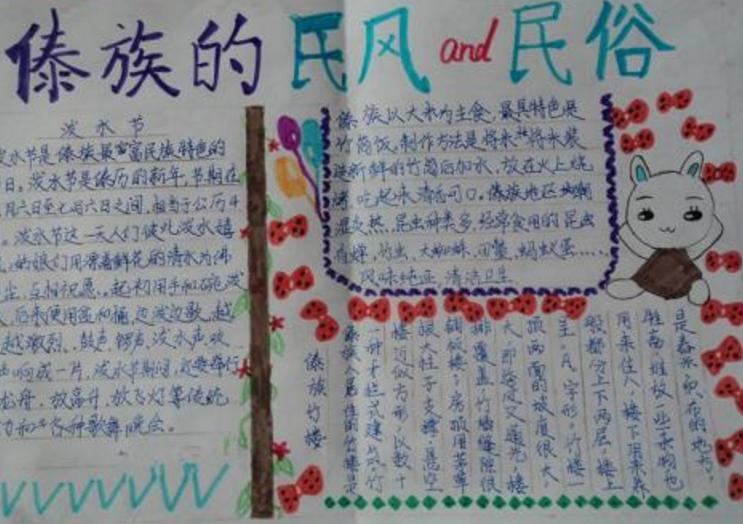 傣族的民风and民俗
泼水节
泼水节是傣族最富民族特色的
日。泼水节是傣历的新年,节期在
月六日至七月六日之间,相当于公历4
。泼水节这一天人们彼此泼水嬉
,姑娘们用漂着鲜花的清水为佛
尘,互相祝愿。起初用手和碗泼
,后来使用盆和桶,边泼边歌,越
越激烈,鼓声、锣声、泼水声欢
声响成一片,泼水节期间,还要举行
龙舟,放高升,放飞灯等传统
动和各种歌舞晚会。
傣族以大米为主食,最具特色是
竹筒饭。制作方法是将米将米装
进新鲜的竹筒后加水,放在火上烧
烤,吃起来清香可口。傣族地区地潮
湿炎热,昆虫种类多,经常食用的昆虫
有蝉,竹虫,大蜘蛛,田鳖,蚂蚁蛋……
风味纯正,清洁卫生
傣族竹楼
傣族人居住的竹楼是
一种干栏式建筑竹
楼近似方形,以数十
根大柱子支撑,悬空
铺楼;房顶用茅草
排覆盖,竹墙缝隙很
大,即透风又透光,楼
顶两面的坡度很大
呈"八"字形。竹楼一
般都分上下两层,楼上
用来住人,楼下用来养
牲畜,堆放一些杂物也
是舂米、织布的地方。